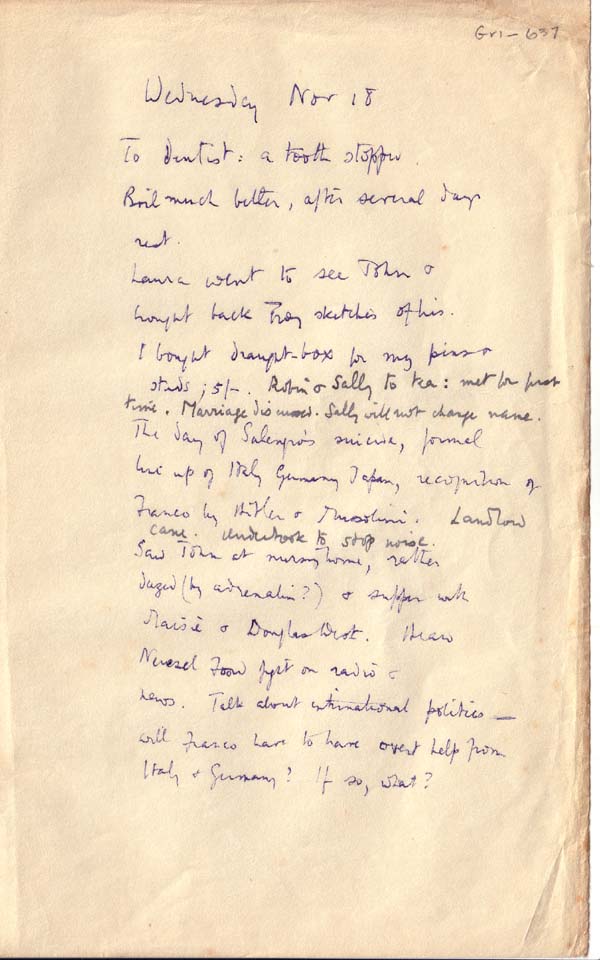 Gri-637
Wednesday Nov 18
To Dentist: a tooth stopped.
Boil much better, after several days
rest.
Laura went to see John &
brought back sketches of his.
I bought draught-box for my pins &
studs; 5/-. Robin & Sally to tea: met for first
time. Marriage discussed. Sally will not change name.
The day of Salengro's suicide, formal
line up of Italy Germany Japan, recognition of
Franco by Hitler & Mussolini. Landlord
came. Undertook to stop noise.
Saw John at nursing home, rather
dazed (by adrenalin?) & supper with
Maisie & Douglas West. Heard
fight on radio &
news. Talk about international politics —
will Franco have to have overt help from
Italy & Germany? If so, what?